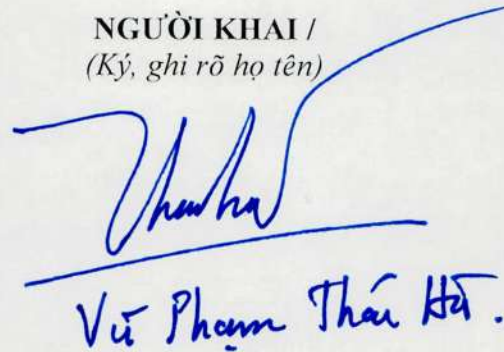 NGƯỜI KHAI /
(Ký, ghi rõ họ tên)
Vũ Phạm Thái Hà.